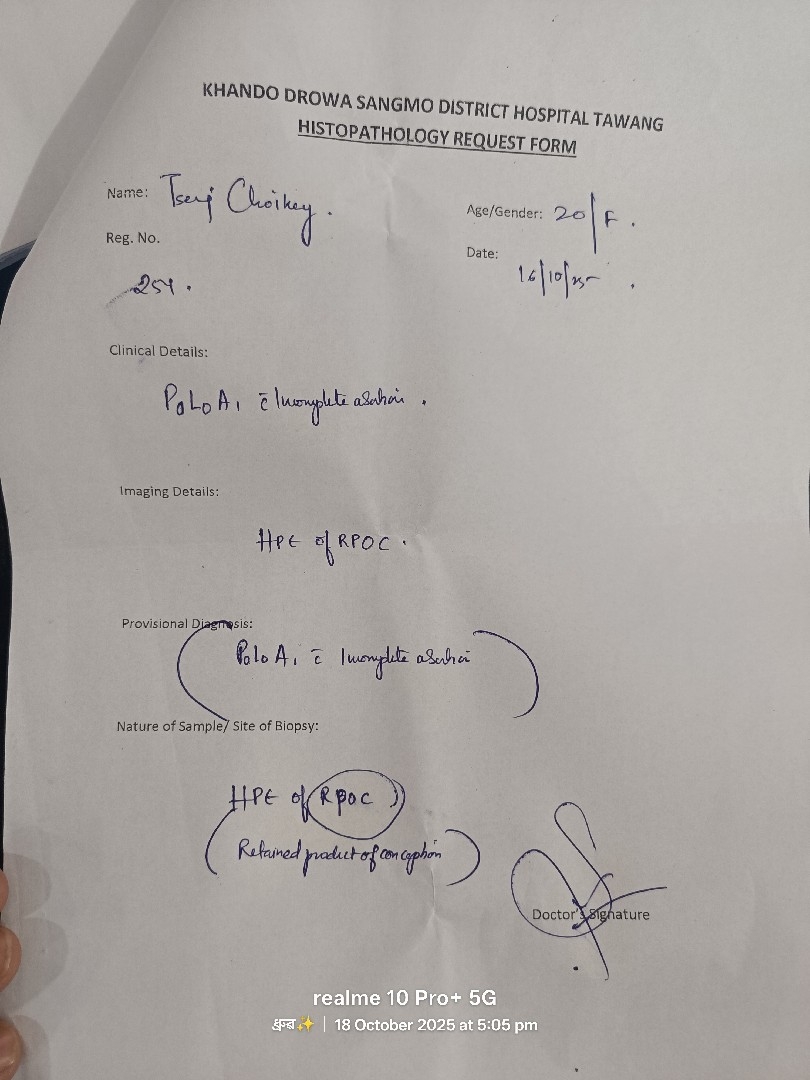 KHANDO DROWA SANGMO DISTRICT HOSPITAL TAWANG
HISTOPATHOLOGY REQUEST FORM
Name: Choikey.
Age/Gender: 20/F.
Reg. No.
Date:
16/10/25
254.
Clinical Details:
P0L0A1 c̄ Incomplete abortion.
Imaging Details:
HPE of RPOC.
Provisional Diagnosis:
P0L0A1 c̄ Incomplete abortion
Nature of Sample/ Site of Biopsy:
HPE of (RPOC)
(Retained product of conception)
Doctor's Signature
realme 10 Pro+ 5G
ध्रुब✨ | 18 October 2025 at 5:05 pm